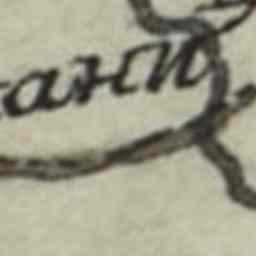 ани